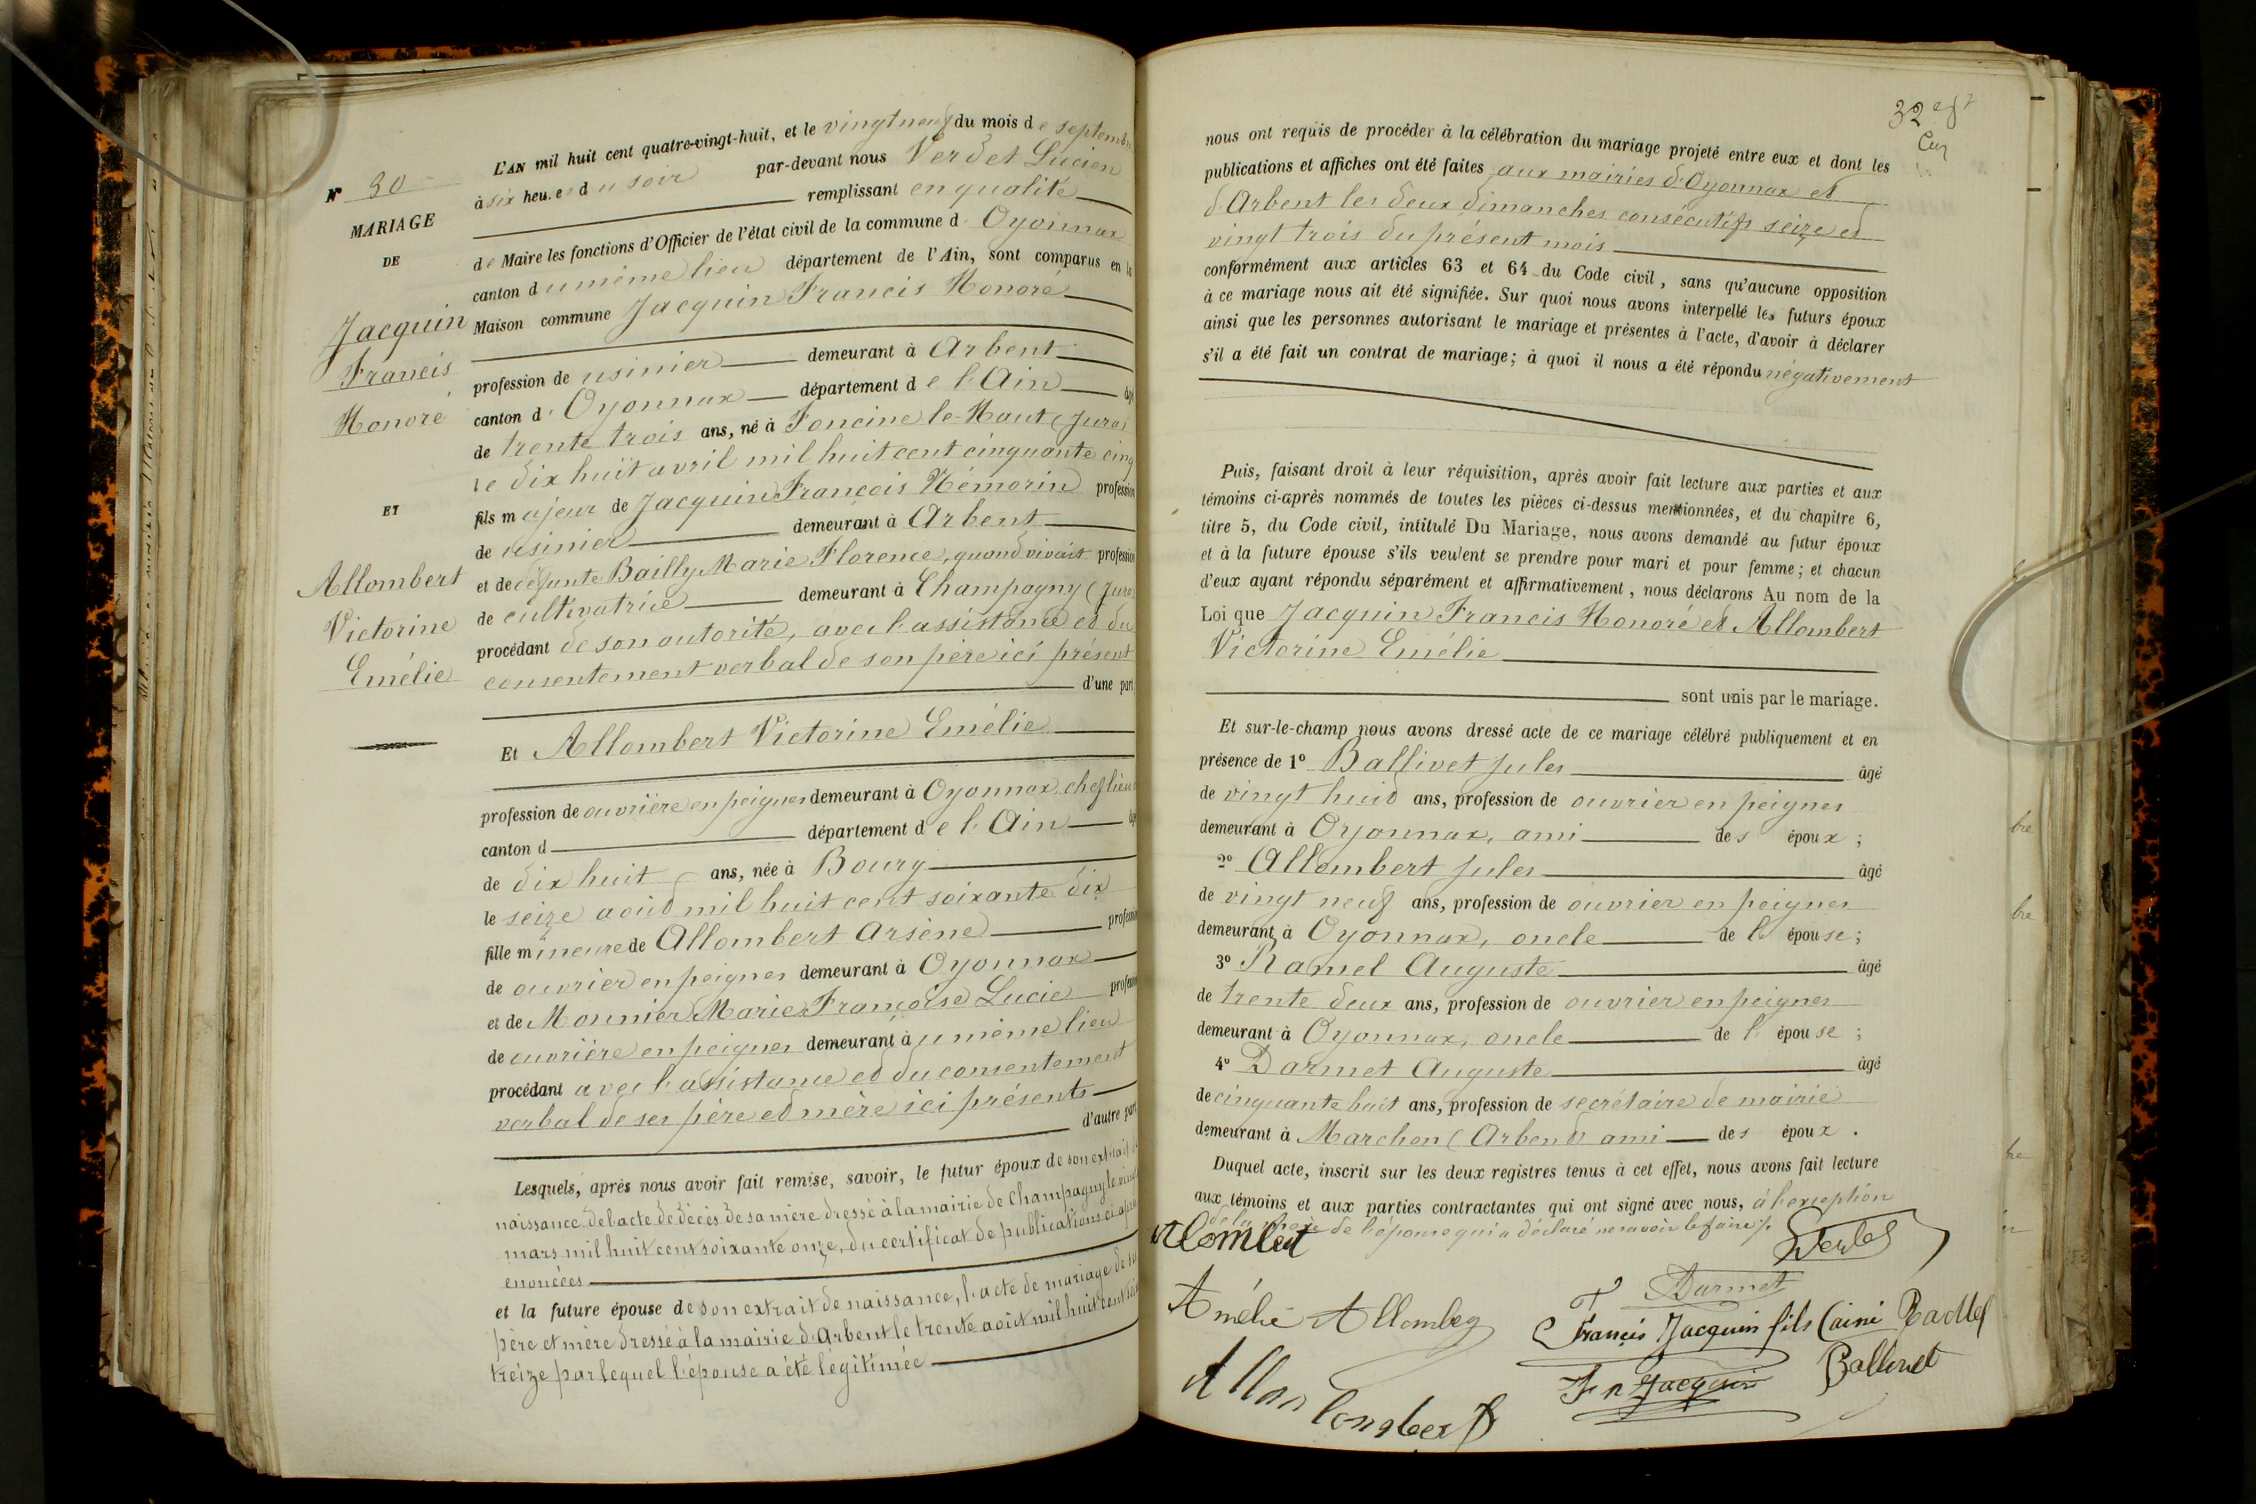 N° 30
MARIAGE
DE
Jacquin
Francis
Honoré
ET
Allombert
Victorine
Emélie
L'AN mil huit cent quatre-vingt-huit, et le vingt neuf du mois de septembre
à six heures du soir par-devant nous Verdet Lucien
remplissant en qualité
de Maire les fonctions d'Officier de l'état civil de la commune d'Oyonnax
canton du même lieu département de l'Ain, sont comparus en la
Maison commune Jacquin Francis Honoré
profession de usinier demeurant à Arbent
canton d'Oyonnax département de l'Ain âgé
de trente trois ans, né à Foncine le-Haut (Jura)
le dix huit avril mil huit cent cinquante cinq
fils majeur de Jacquin François Némorin profession
de usinier demeurant à Arbent
et de défunte Bailly Marie Florence, quand vivait profession
de cultivatrice demeurant à Champagny (Jura)
procédant de son autorité, avec l'assistance et du
consentement verbal de son père ici présent
d'une part
Et Allombert Victorine Emélie
profession de ouvrière en peignes demeurant à Oyonnax chef lieu
canton d département de l'Ain âgé
de dix huit ans, née à Bourg
le seize août mil huit cent soixante dix
fille mineure de Allombert Arsène profession
de ouvrier en peignes demeurant à Oyonnax
et de Monnier Marie Françoise Lucie profession
de ouvrière en peignes demeurant à u même lieu
procédant avec l'assistance et du consentement
verbal de ses père et mère ici présents
d'autre part
Lesquels, après nous avoir fait remise, savoir, le futur époux de son extrait de
naissance, de l'acte de décès de sa mère dressé à la mairie de Champagny le
mars mil huit cent soixante onze, du certificat de publications ci après
enoncées
et la future épouse de son extrait de naissance, l'acte de mariage de ses
père et mère dressé à la mairie d'Arbent le trente août mil huit cent
treize par lequel l'épouse a été légitimée
32
nous ont requis de procéder à la célébration du mariage projeté entre eux et dont les
publications et affiches ont été faites aux mairies d'Oyonnax et
d'Arbent les deux dimanches consécutifs seize et
vingt trois du présent mois
conformément aux articles 63 et 64 du Code civil, sans qu'aucune opposition
à ce mariage nous ait été signifiée. Sur quoi nous avons interpellé les futurs époux
ainsi que les personnes autorisant le mariage et présentes à l'acte, d'avoir à déclarer
s'il a été fait un contrat de mariage; à quoi il nous a été répondu négativement
Puis, faisant droit à leur réquisition, après avoir fait lecture aux parties et aux
témoins ci-après nommés de toutes les pièces ci-dessus mentionnées, et du chapitre 6,
titre 5, du Code civil, intitulé Du Mariage, nous avons demandé au futur époux
et à la future épouse s'ils veulent se prendre pour mari et pour femme; et chacun
d'eux ayant répondu séparément et affirmativement, nous déclarons Au nom de la
Loi que Jacquin Francis Honoré et Allombert
Victorine Emélie
sont unis par le mariage.
Et sur-le-champ nous avons dressé acte de ce mariage célébré publiquement et en
présence de 1° Ballivet Jules âgé
de vingt huit ans, profession de ouvrier en peignes
demeurant à Oyonnax, ami des époux;
2° Allombert Jules âgé
de vingt neuf ans, profession de ouvrier en peignes
demeurant à Oyonnax, oncle de l'épouse;
3° Ramel Auguste âgé
de trente deux ans, profession de ouvrier en peignes
demeurant à Oyonnax, oncle de l'épouse;
4° Darmet Auguste âgé
de cinquante huit ans, profession de secrétaire de mairie
demeurant à Marchon (Arbent) ami des époux.
Duquel acte, inscrit sur les deux registres tenus à cet effet, nous avons fait lecture
aux témoins et aux parties contractantes qui ont signé avec nous, à l'exception
de la mère de l'épouse qui a déclaré ne savoir le faire
Allombert
Verdet
Darmet
Amélie Allombert
Francis Jacquin fils ainé Ramel
Ballivet
Fn Jacquin
Allombert